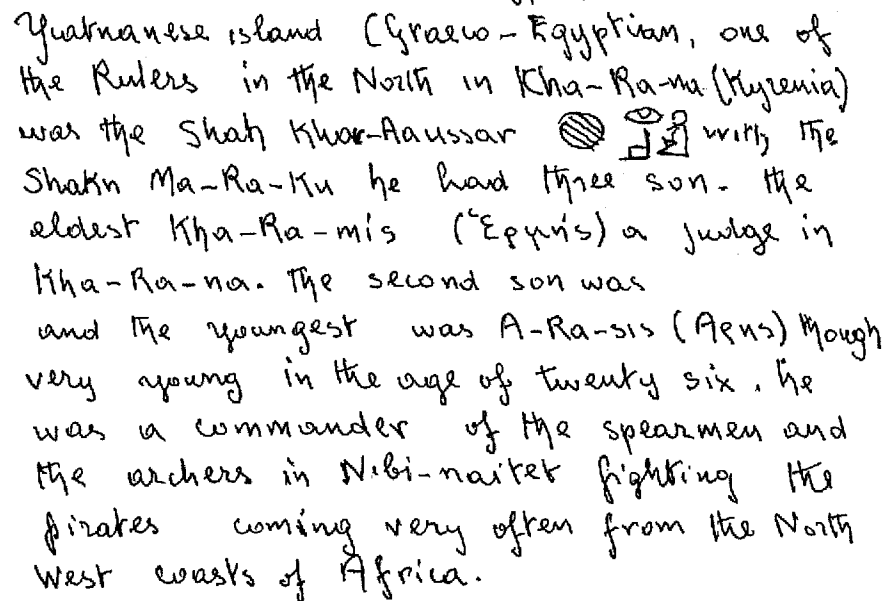 Yuatnanese island (Graeco-Egyptian, one of
the Rulers in the North in Kha-Ra-na (Kyrenia)
was the Shah Khar-Aaussar with the
Shakn Ma-Ra-Ku he had three son. the
eldest Kha-Ra-mis (Ἑρμής) a judge in
Kha-Ra-na. The second son was
and the youngest was A-Ra-sis (Αρης) though
very young in the age of twenty six, he
was a commander of the spearmen and
the archers in Nibi-naitet fighting the
pirates coming very often from the North
West coasts of Africa.